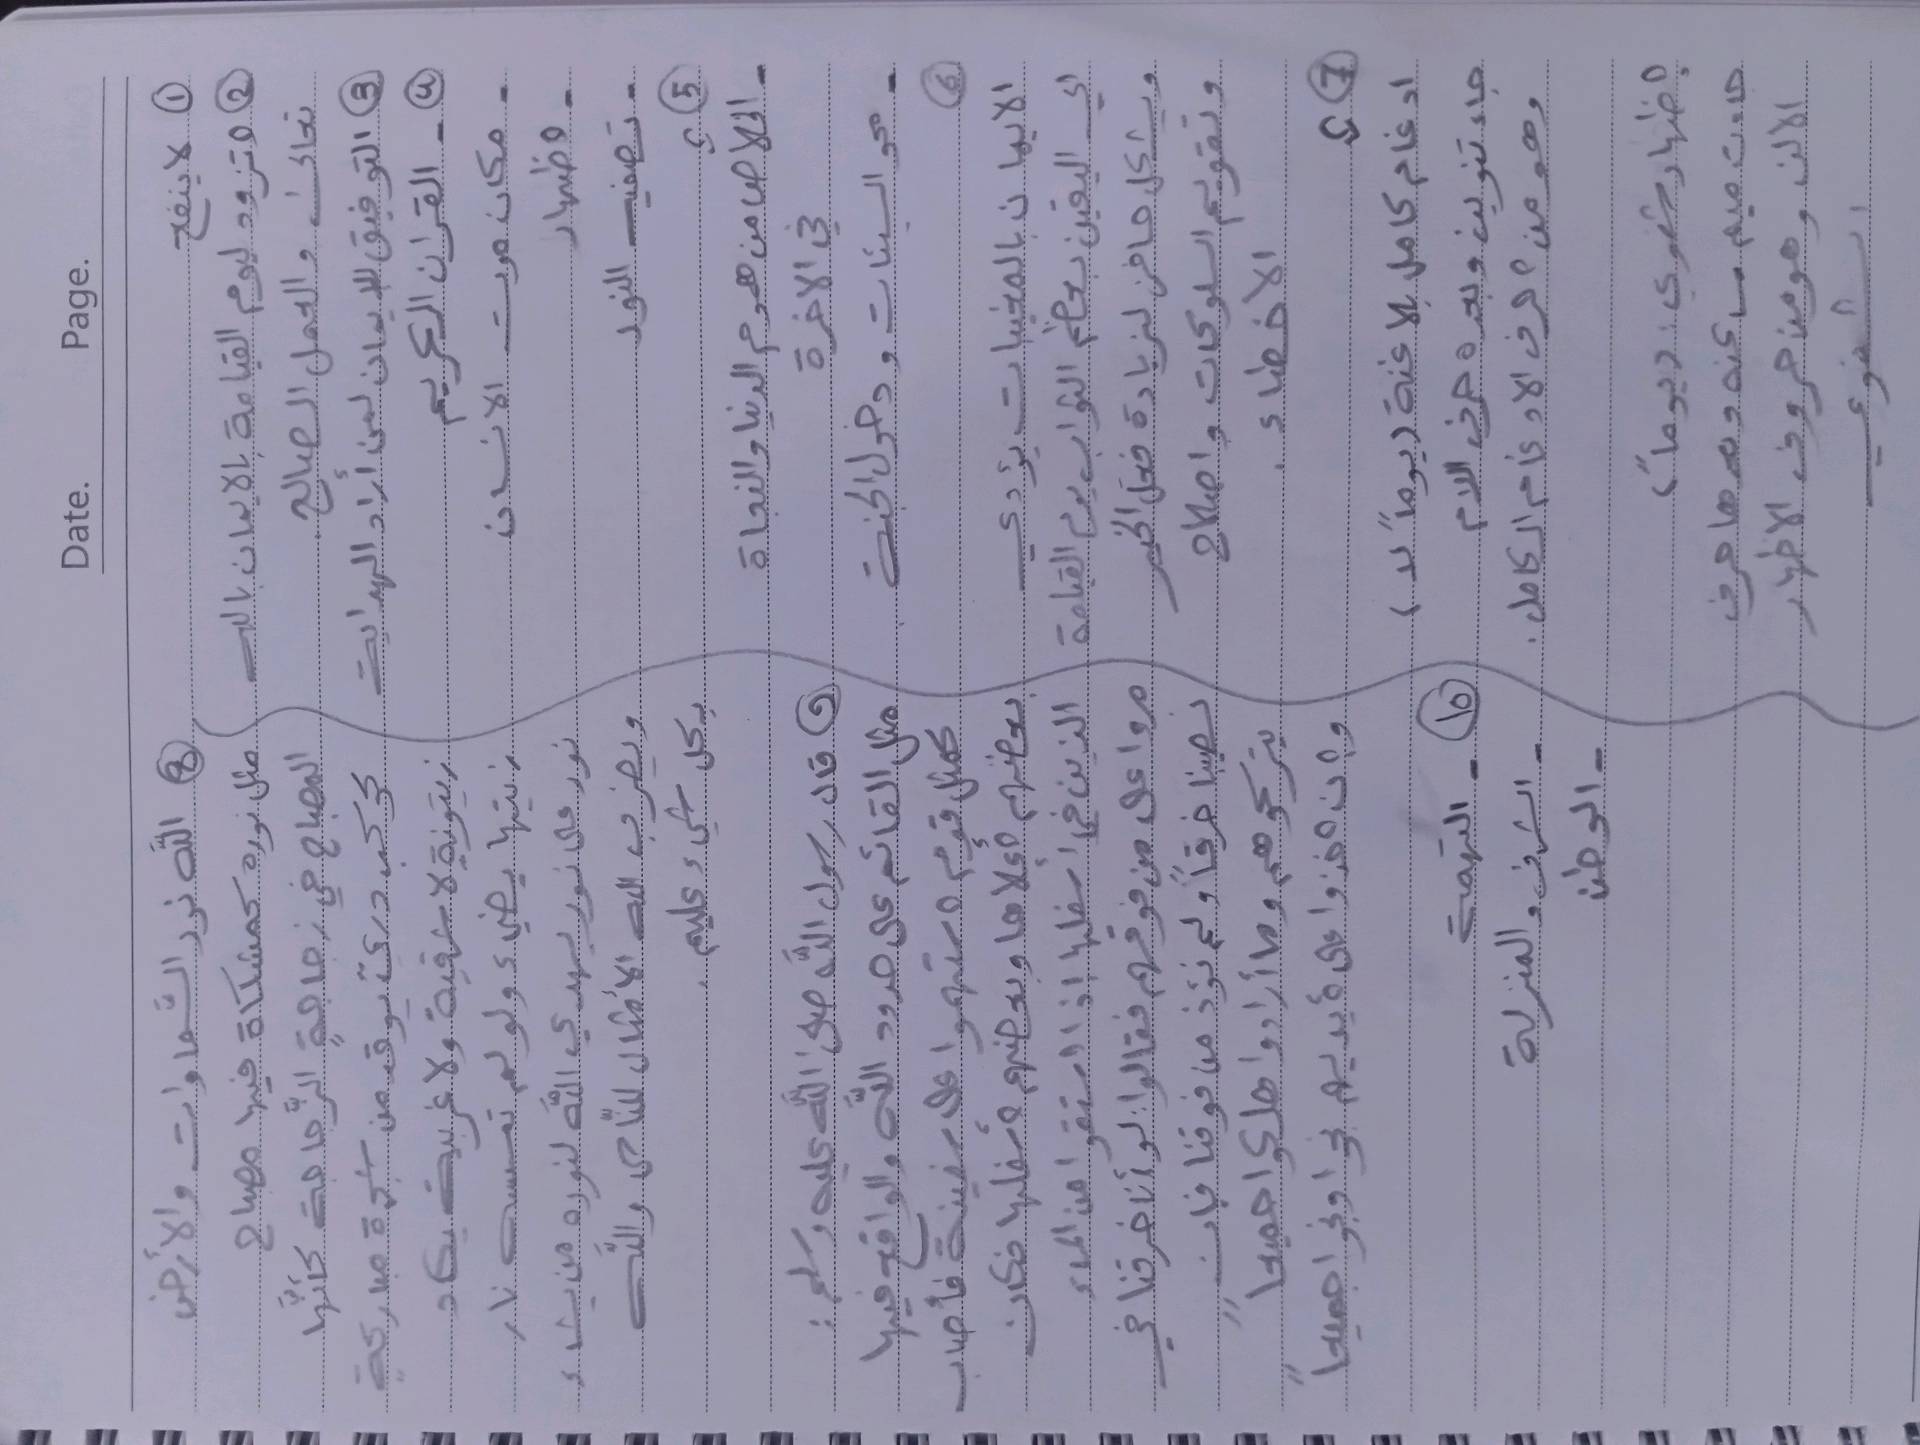 Date. Page.
① لا ينفع
② فتزود ليوم القيامة بالايمان بالله
تعالى و العمل الصالح.
③ التوفيق للايمان لمن أراد الهداية
④ - القران الكريم
- مكان مرت الانسدن
- وضهار
- تصفية النور
⑤ ى
- الخلاص من هموم الدنيا والنجاة
في الاخرة
- محو السيئات ودخول الجنة
⑥
الايمان بالمغيبات يؤدي
الى اليقين بعظم الثواب يوم القيامة
ويشكل حافز لزيادة فعل الخير
وتقويم السلوكات واصلاح
الاخطاء.
⑦ ى
ادغام كامل بلا غنة (يوماً لا)
جاء تنوين وبعده حرف اللام
وهو من حرف الادغام الكامل.
اضهار شفوي: (يوماً)
جاءت ميم ساكنه وبعدها حرف
الالف وهو من حروف الاظهار
الشفوي
⑧ اللّٰه نور السّماوات والأرض
مثل نوره كمشكاة فيها مصباح
المصباح في زجاجةٍ الزّجاجة كأنّها
كوكب دري يوقد من شجرة مباركةٍ
زيتونةٍ لا شرقية ولا غربية يكاد
زيتها يضيء ولو لم تمسسه نار
نور على نور يهدي اللّٰه لنوره من يشاء
ويضرب الله الأمثال للنّاس واللّٰه
بكل شيء عليم.
⑨ قال رسول اللّٰه صلى اللّٰه عليه وسلم:
مثل القائم على حدود اللّٰه والواقع فيها
كمثل قوم استهموا على سفينة فأصاب
بعضهم أعلاها وبعضهم أسفلها فكان
الذين في أسفلها اذا استقوا من الماء
مروا على من فوقهم فقالوا: لو أنا خرقنا في
نصيبنا خرقاً ولم نؤذ من فوقنا فإن
يتركوهم وما أرادوا هلكوا جميعاً
وإن أخذوا على أيديهم نجوا ونجوا جميعاً
⑩ - التهمة
- الشرف والمنزلة
- الوطن